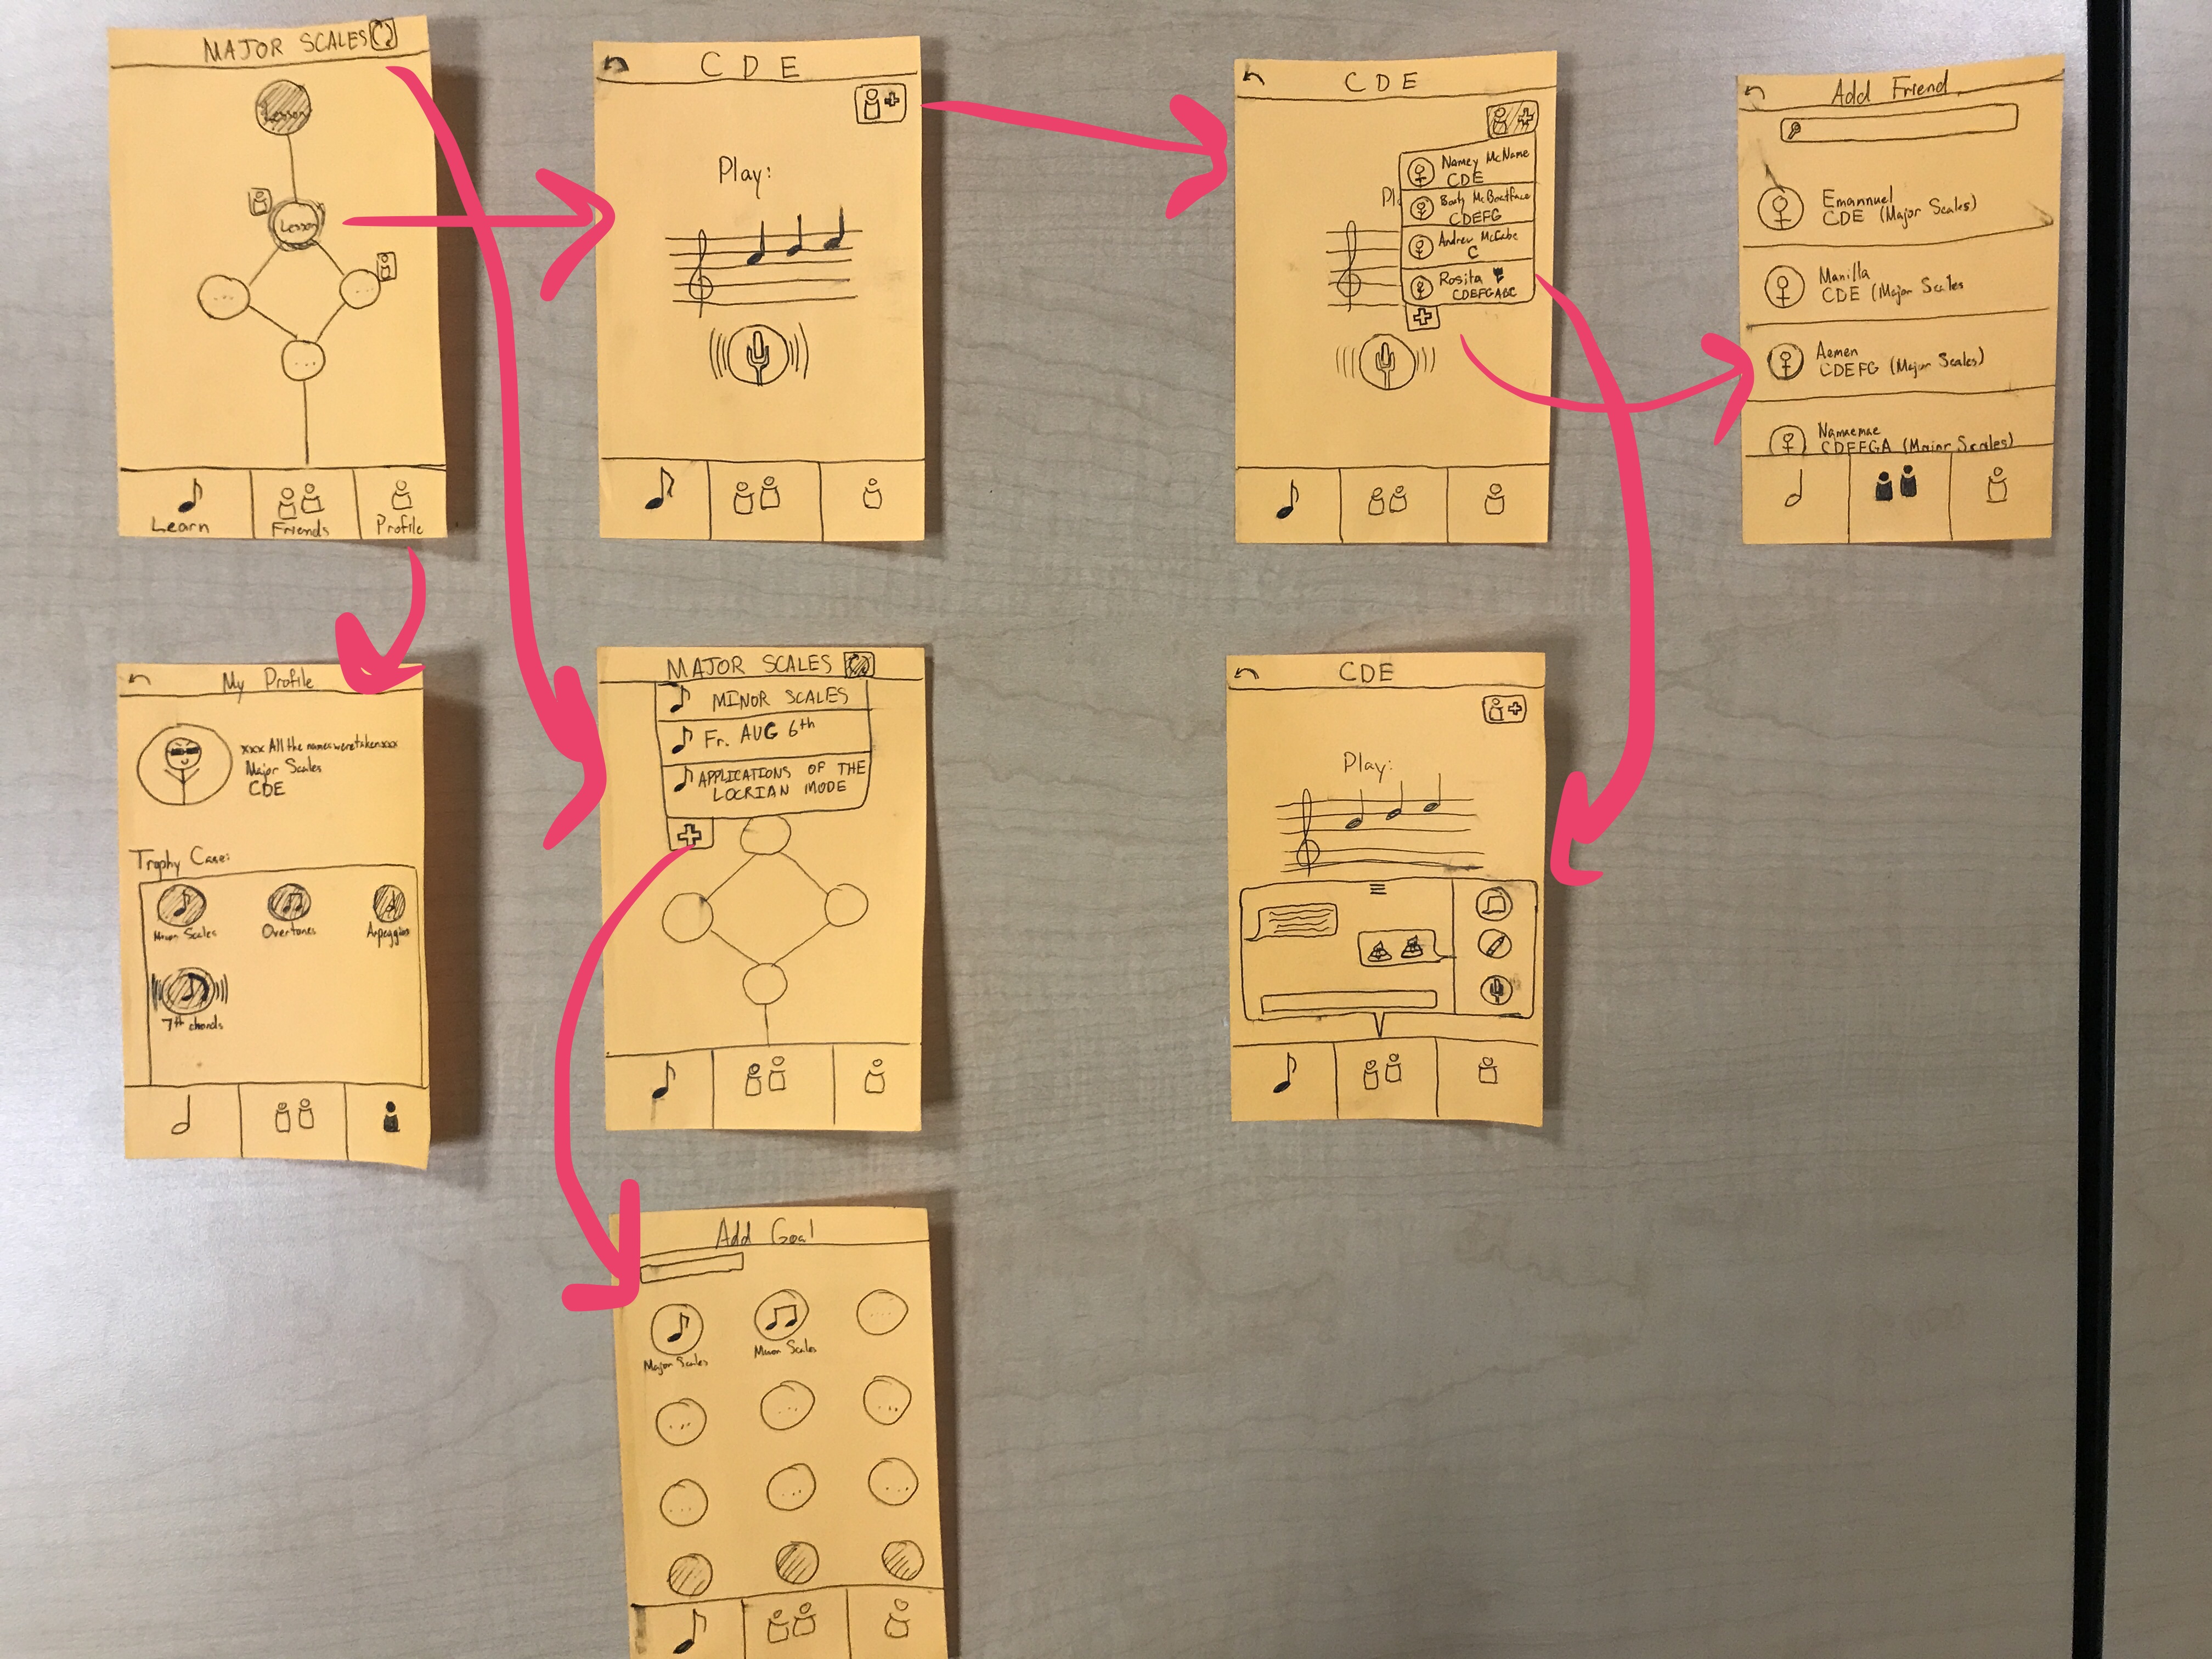 MAJOR SCALES
Lesson
Lesson
...
...
...
Learn
Friends
Profile
C D E
Play:
CDE
Namey McName
CDE
Boaty McBoatface
CDEFG
Andrew McCabe
C
Rosita
CDEFGABC
Pl
Add Friend
Emannuel
CDE (Major Scales)
Manilla
CDE (Major Scales
Aemen
CDEFG (Major Scales)
Namaemae
CDEFFGA (Major Scales)
My Profile
xxx All the namesweretakenxxx
Major Scales
CDE
Trophy Case:
Minor Scales
Overtones
Arpeggios
7th chords
MAJOR SCALES
MINOR SCALES
Fr. AUG 6th
APPLICATIONS OF THE
LOCRIAN MODE
CDE
Play:
Add Goal
Major Scales
Minor Scales
...
...
...
...
...
...
...